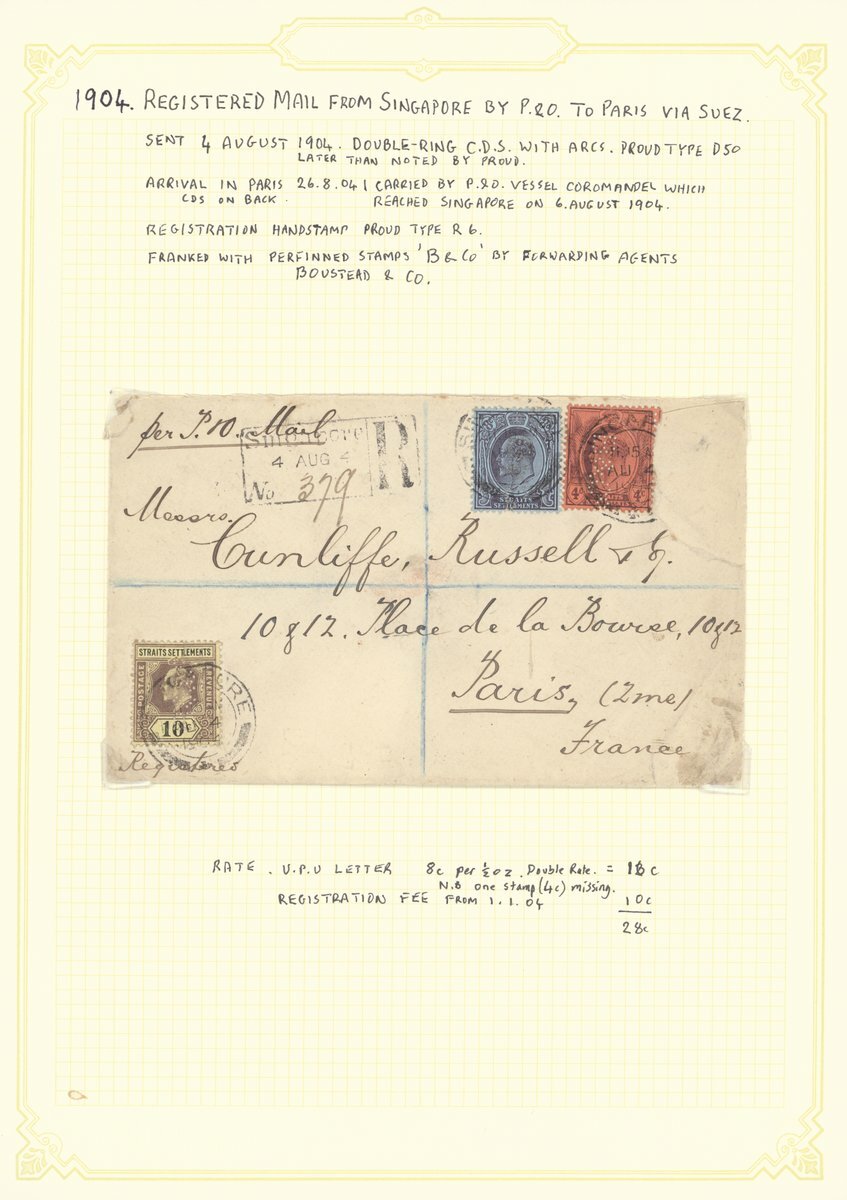 1904. REGISTERED MAIL FROM SINGAPORE BY P.&O. TO PARIS VIA SUEZ.
SENT 4 AUGUST 1904. DOUBLE-RING C.D.S. WITH ARCS. PROUD TYPE D50
LATER THAN NOTED BY PROUD.
ARRIVAL IN PARIS 26.8.04 | CARRIED BY P.&O. VESSEL COROMANDEL WHICH
CDS ON BACK. REACHED SINGAPORE ON 6.AUGUST 1904.
REGISTRATION HANDSTAMP PROUD TYPE R6.
FRANKED WITH PERFINNED STAMPS 'B & Co' BY FORWARDING AGENTS
BOUSTEAD & CO.
per P. & O. Mail
Singapore
R
4 AUG 4
No 379
STRAITS
SETTLEMENTS
4c 4c
Messrs.
Cunliffe, Russell & Co.
10 & 12. Place de la Bourse, 10 & 12
Paris, (2me)
France
STRAITS SETTLEMENTS
POSTAGE
REVENUE
10c
Registered
RATE. U.P.U LETTER 8c per ½oz. Double Rate. = 18c
N.B one stamp (4c) missing.
REGISTRATION FEE FROM 1.1.04 10c
28c